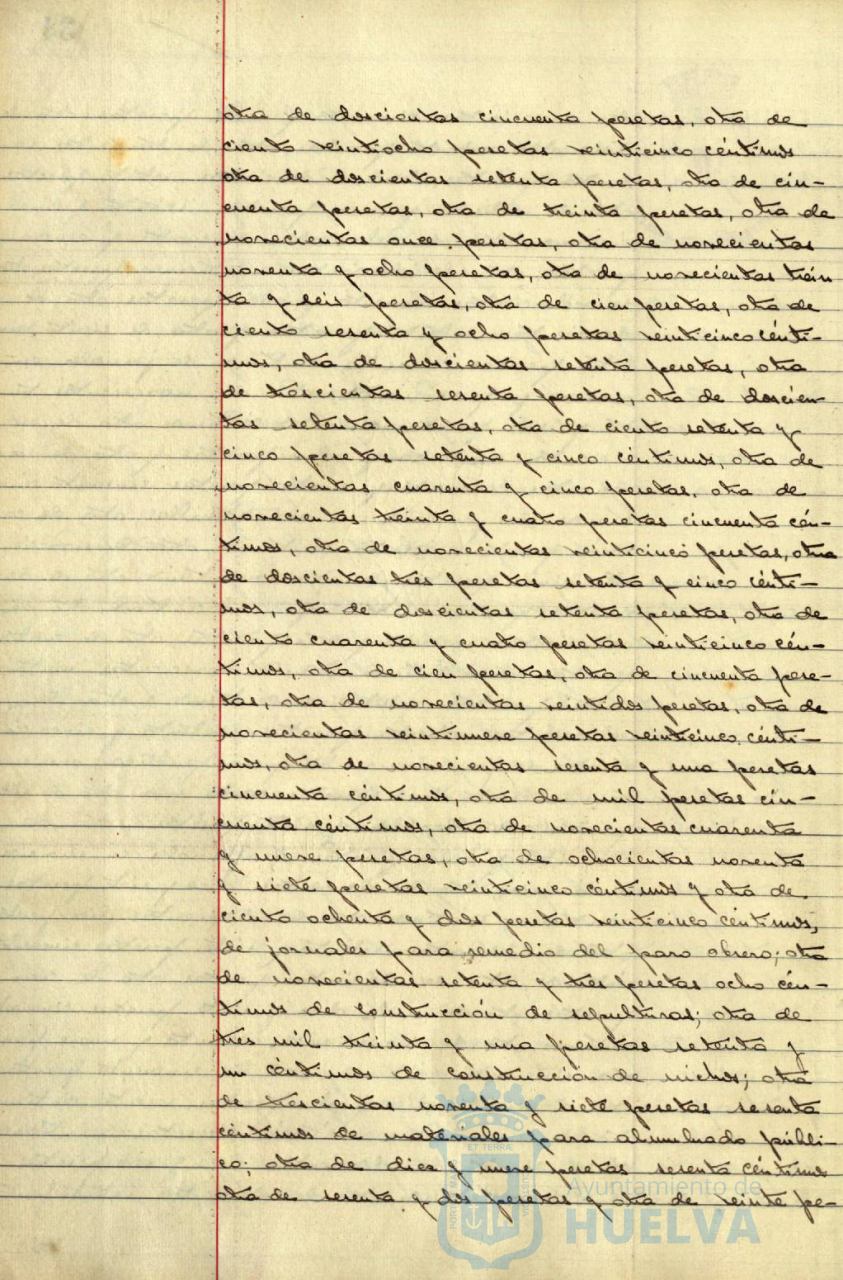 otra de doscientas cincuenta pesetas, otra de
ciento veintiocho pesetas veinticinco céntimos
otra de doscientas setenta pesetas, otra de cin-
cuenta pesetas, otra de treinta pesetas, otra de
novecientas once pesetas, otra de novecientas
noventa y ocho pesetas, otra de novecientas trein
ta y seis pesetas, otra de cien pesetas, otra de
ciento sesenta y ocho pesetas veinticinco cénti-
mos, otra de doscientas setenta pesetas, otra
de trescientas sesenta pesetas, otra de doscien-
tas setenta pesetas, otra de ciento setenta y
cinco pesetas setenta y cinco céntimos, otra de
novecientas cuarenta y cinco pesetas, otra de
novecientas treinta y cuatro pesetas cincuenta cén-
timos, otra de novecientas veinticinco pesetas, otra
de doscientas tres pesetas setenta y cinco cénti-
mos, otra de doscientas setenta pesetas, otra de
ciento cuarenta y cuatro pesetas veinticinco cén-
timos, otra de cien pesetas, otra de cincuenta pese-
tas, otra de novecientas veintidos pesetas, otra de
novecientas veintinueve pesetas veinticinco cénti-
mos, otra de novecientas sesenta y una pesetas
cincuenta céntimos, otra de mil pesetas cin-
cuenta céntimos, otra de novecientas cuarenta
y nueve pesetas, otra de ochocientas noventa
y siete pesetas veinticinco céntimos y otra de
ciento ochenta y dos pesetas veinticinco céntimos,
de jornales para remedio del paro obrero; otra
de novecientas setenta y tres pesetas ocho cén-
timos de construcción de sepulturas; otra de
tres mil treinta y una pesetas setenta y
un céntimos de construcción de nichos; otra
de trescientas noventa y siete pesetas sesenta
céntimos de materiales para alumbrado públi-
co; otra de diez y nueve pesetas sesenta céntimos
otra de sesenta y dos pesetas y otra de veinte pe-
Ayuntamiento de
HUELVA